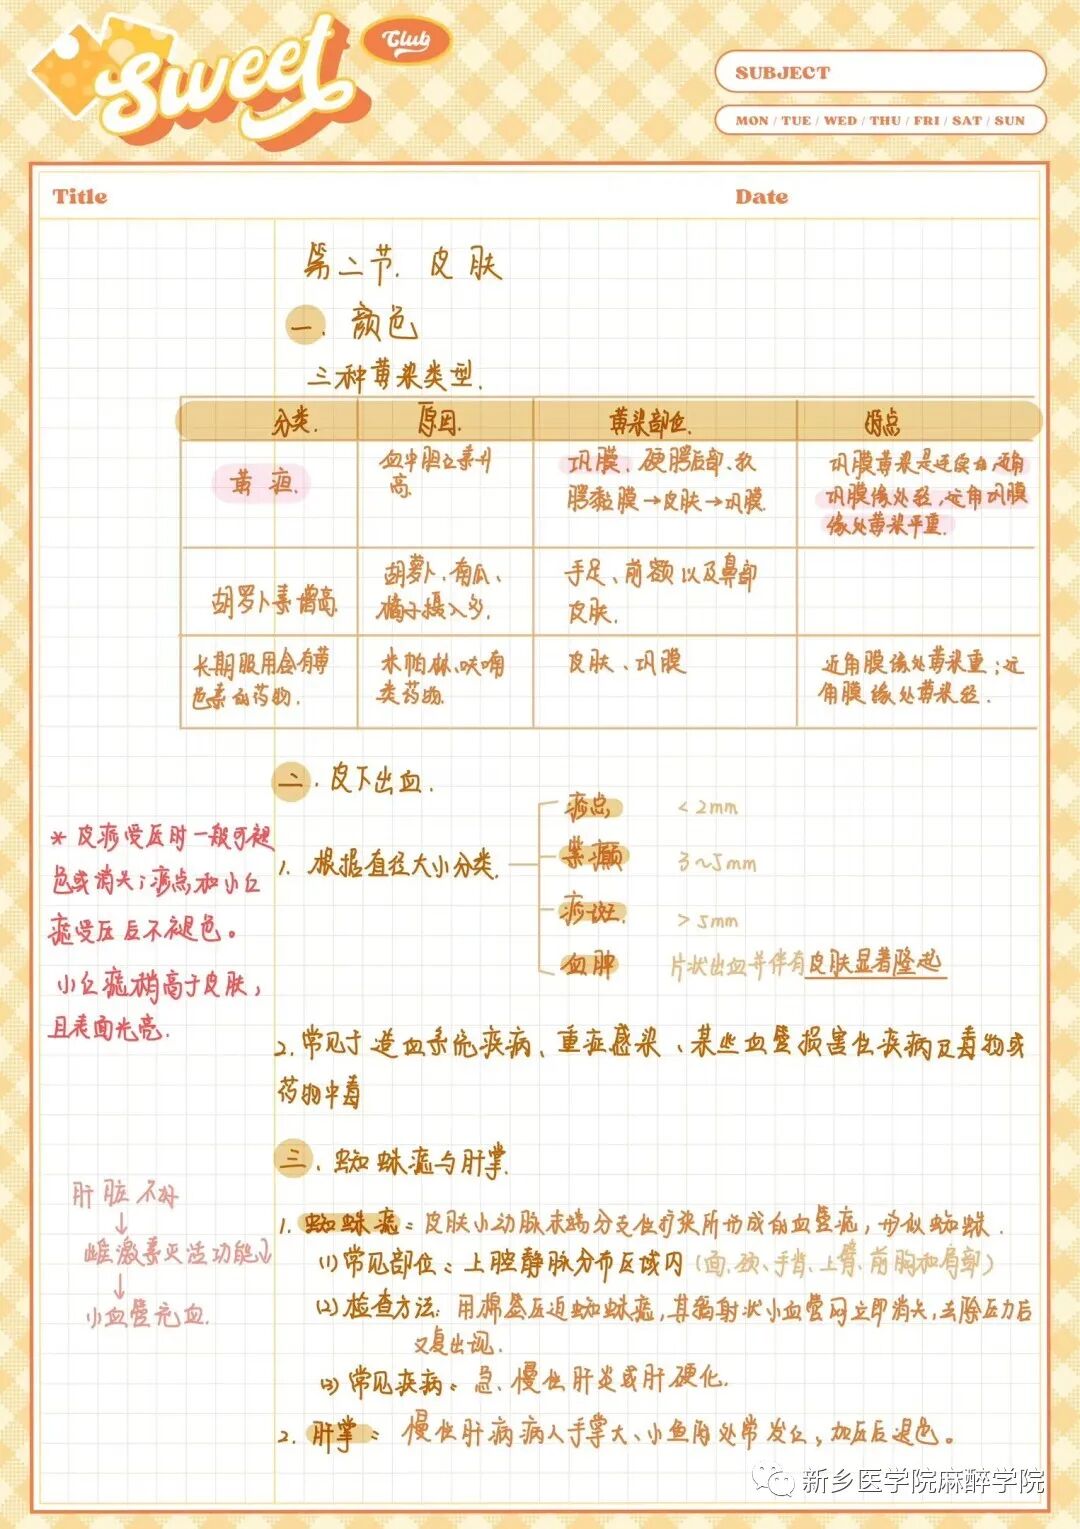 Sweet
Club
SUBJECT
MON / TUE / WED / THU / FRI / SAT / SUN
Title
Date
第二节. 皮肤
一. 颜色
三种黄染类型.
分类. 原因. 黄染部位. 特点
黄疸. 血中胆红素升高. 巩膜、硬腭后部、软腭黏膜→皮肤→巩膜. 巩膜黄染是连续的,近角巩膜缘处轻,远角巩膜缘处黄染重.
胡罗卜素增高. 胡萝卜、南瓜、橘子摄入多. 手足、前额以及鼻部皮肤.
长期服用含有黄色素的药物. 米帕林、呋喃类药物. 皮肤、巩膜 近角膜缘处黄染重;远角膜缘处黄染轻.
二. 皮下出血.
1. 根据直径大小分类.
瘀点 < 2mm
紫癜 3~5mm
瘀斑. > 5mm
血肿 片状出血并伴有皮肤显著隆起
* 皮疹受压时一般可褪
色或消失;瘀点和小红
痣受压后不褪色。
小红痣稍高于皮肤,
且表面光亮.
2. 常见于造血系统疾病、重症感染、某些血管损害性疾病及毒物或
药物中毒
三. 蜘蛛痣与肝掌.
1. 蜘蛛痣: 皮肤小动脉末端分支性扩张所形成的血管痣,形似蜘蛛.
(1) 常见部位: 上腔静脉分布区域内(面、颈、手背、上臂、前胸和肩部)
(2) 检查方法: 用棉签压迫蜘蛛痣,其辐射状小血管网立即消失,去除压力后
又复出现.
(3) 常见疾病: 急、慢性肝炎或肝硬化.
2. 肝掌: 慢性肝病病人手掌大、小鱼际处常发红,加压后退色。
肝脏不好
↓
雌激素灭活功能↓
↓
小血管充血.
新乡医学院麻醉学院